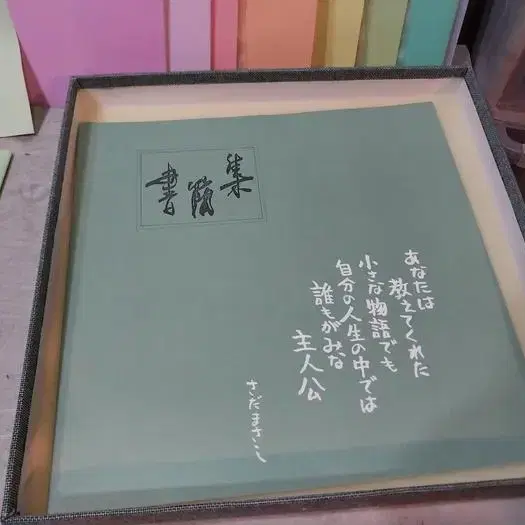 書簡集
あなたは
教えてくれた
小さな物語でも
自分の人生の中では
誰もがみな
主人公
さだまさし